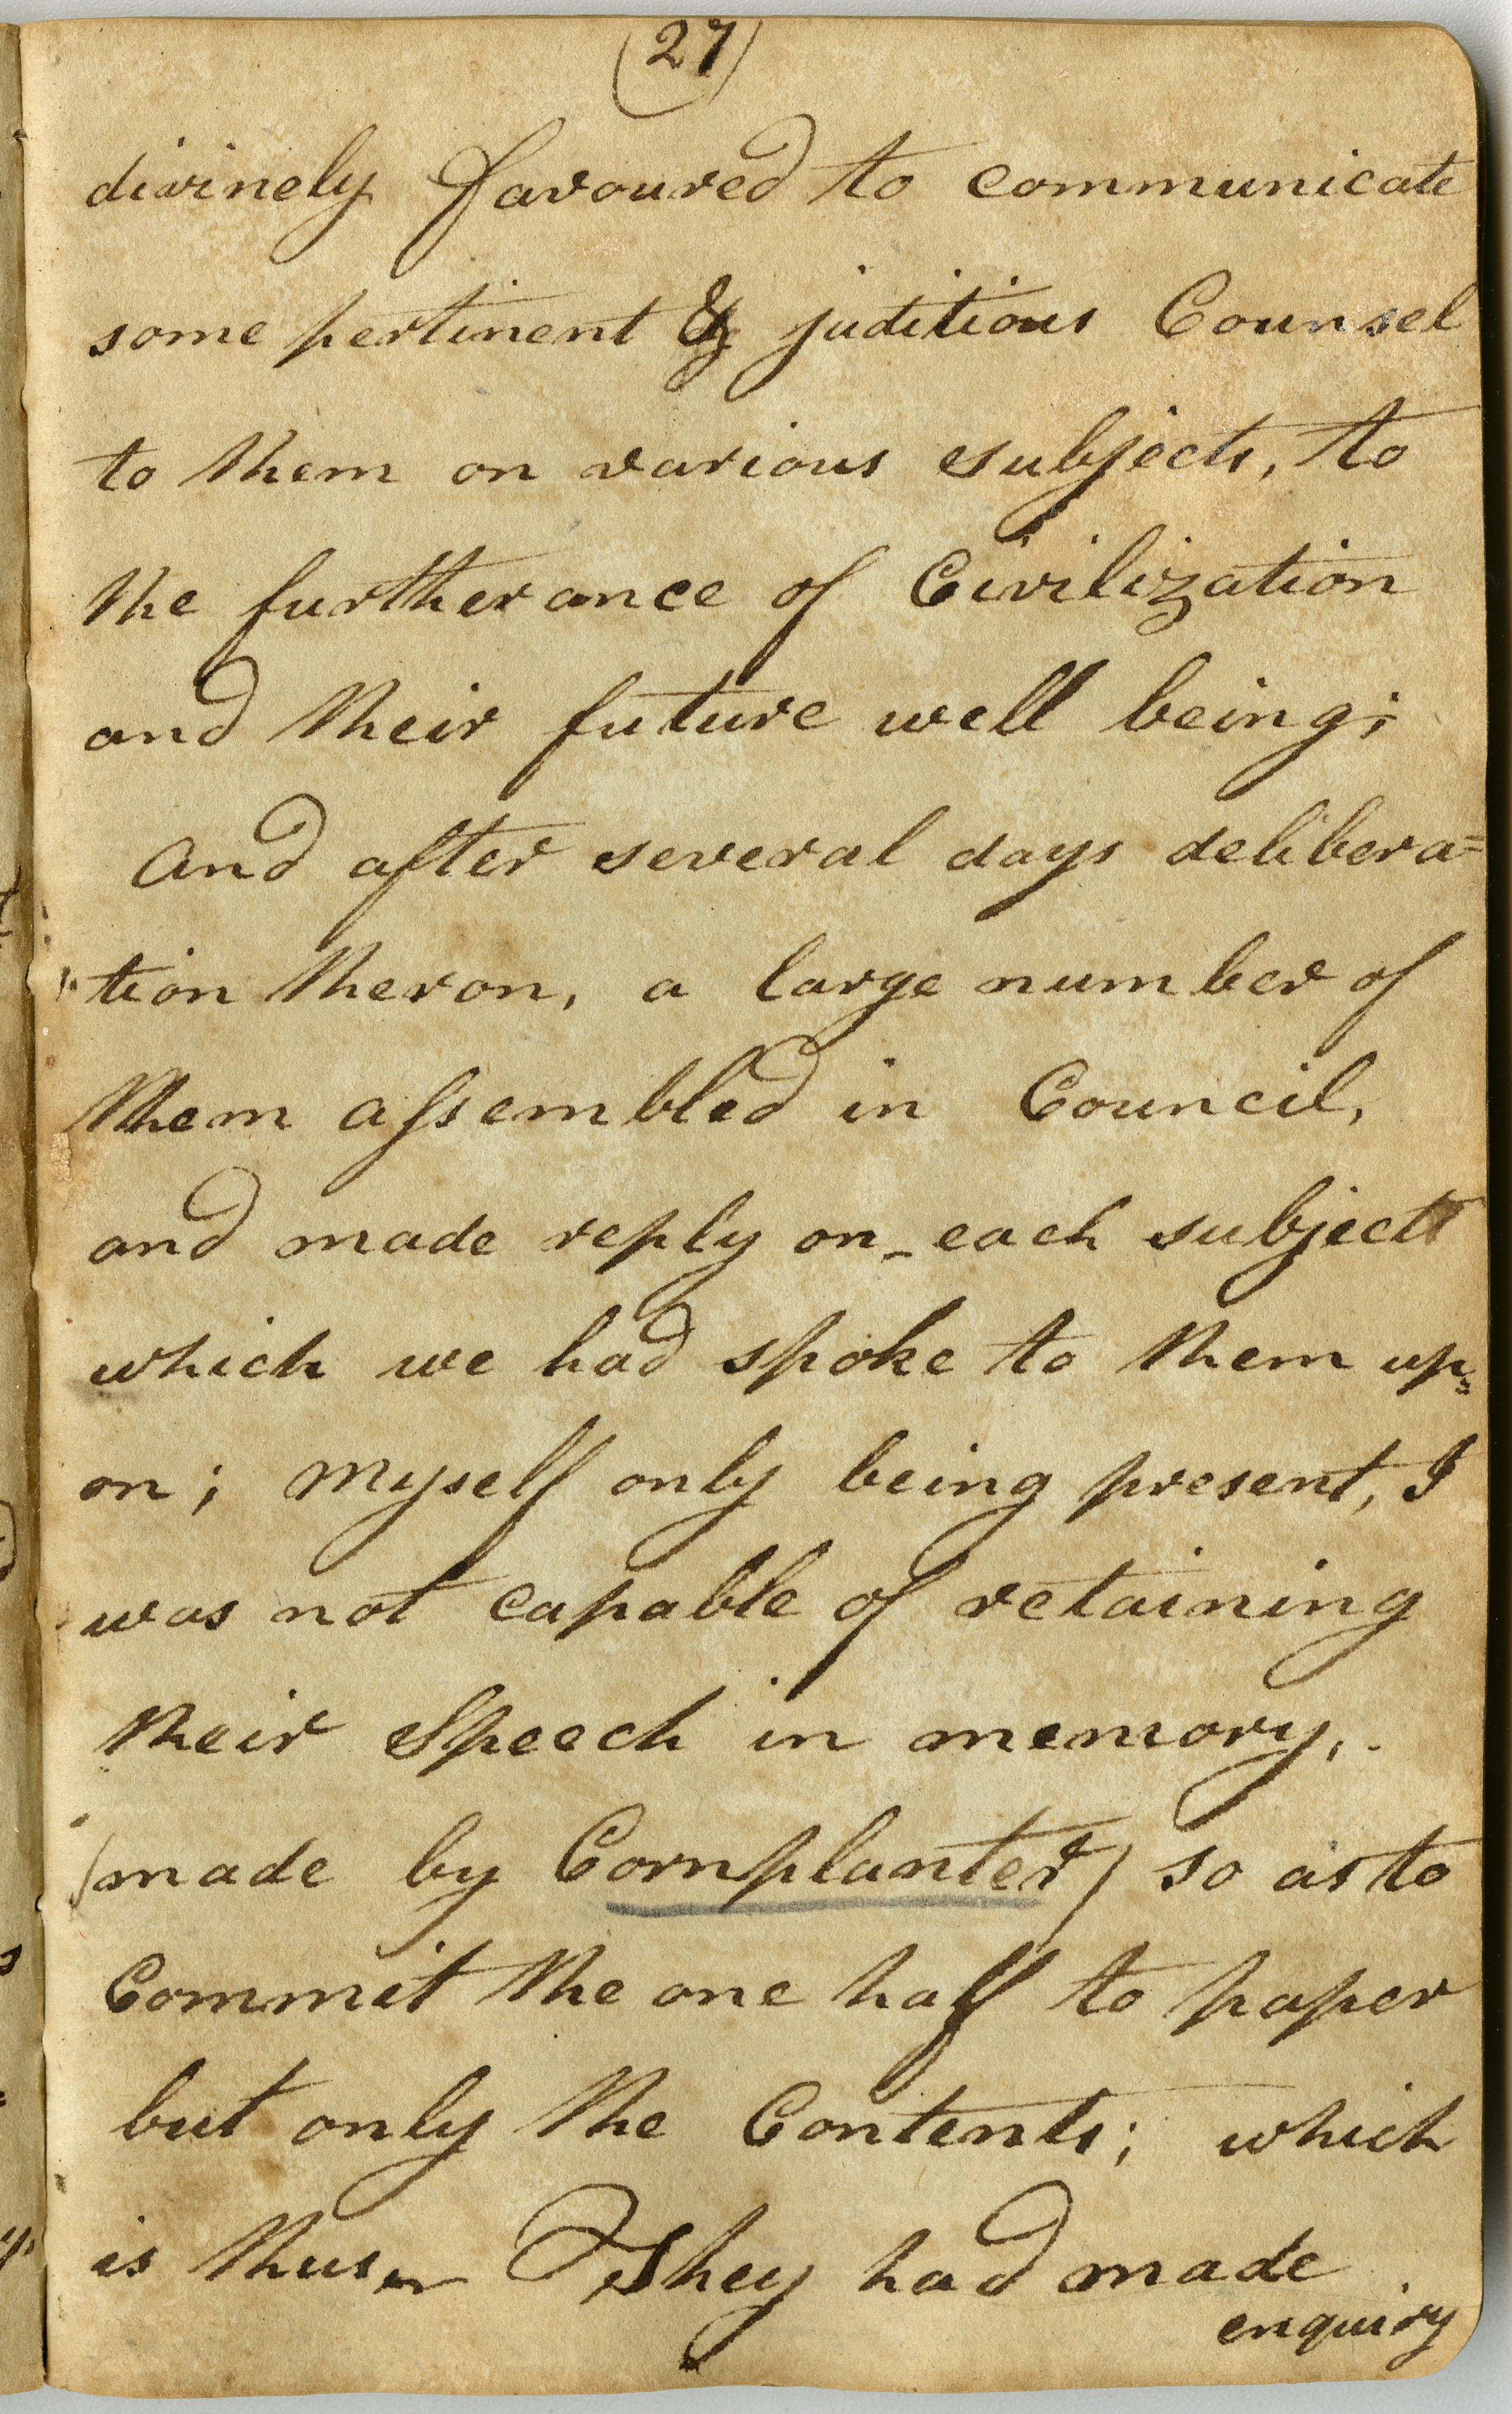 (27)
divinely favoured to communicate
some pertinent & juditious Counsel
to them on various subjects, to
the furtherance of Civilization
and their future well being;
And after several days delibera=
"tion theron, a large number of
them assembled in Council,
and made reply on_each subject
which we had spoke to them up=
on; myself only being present, I
was not capable of retaining
their Speech in memory,.
(made by Cornplanter) so as to
Commit the one half to paper
but only the Contents; which
is thus They had made
enquiry